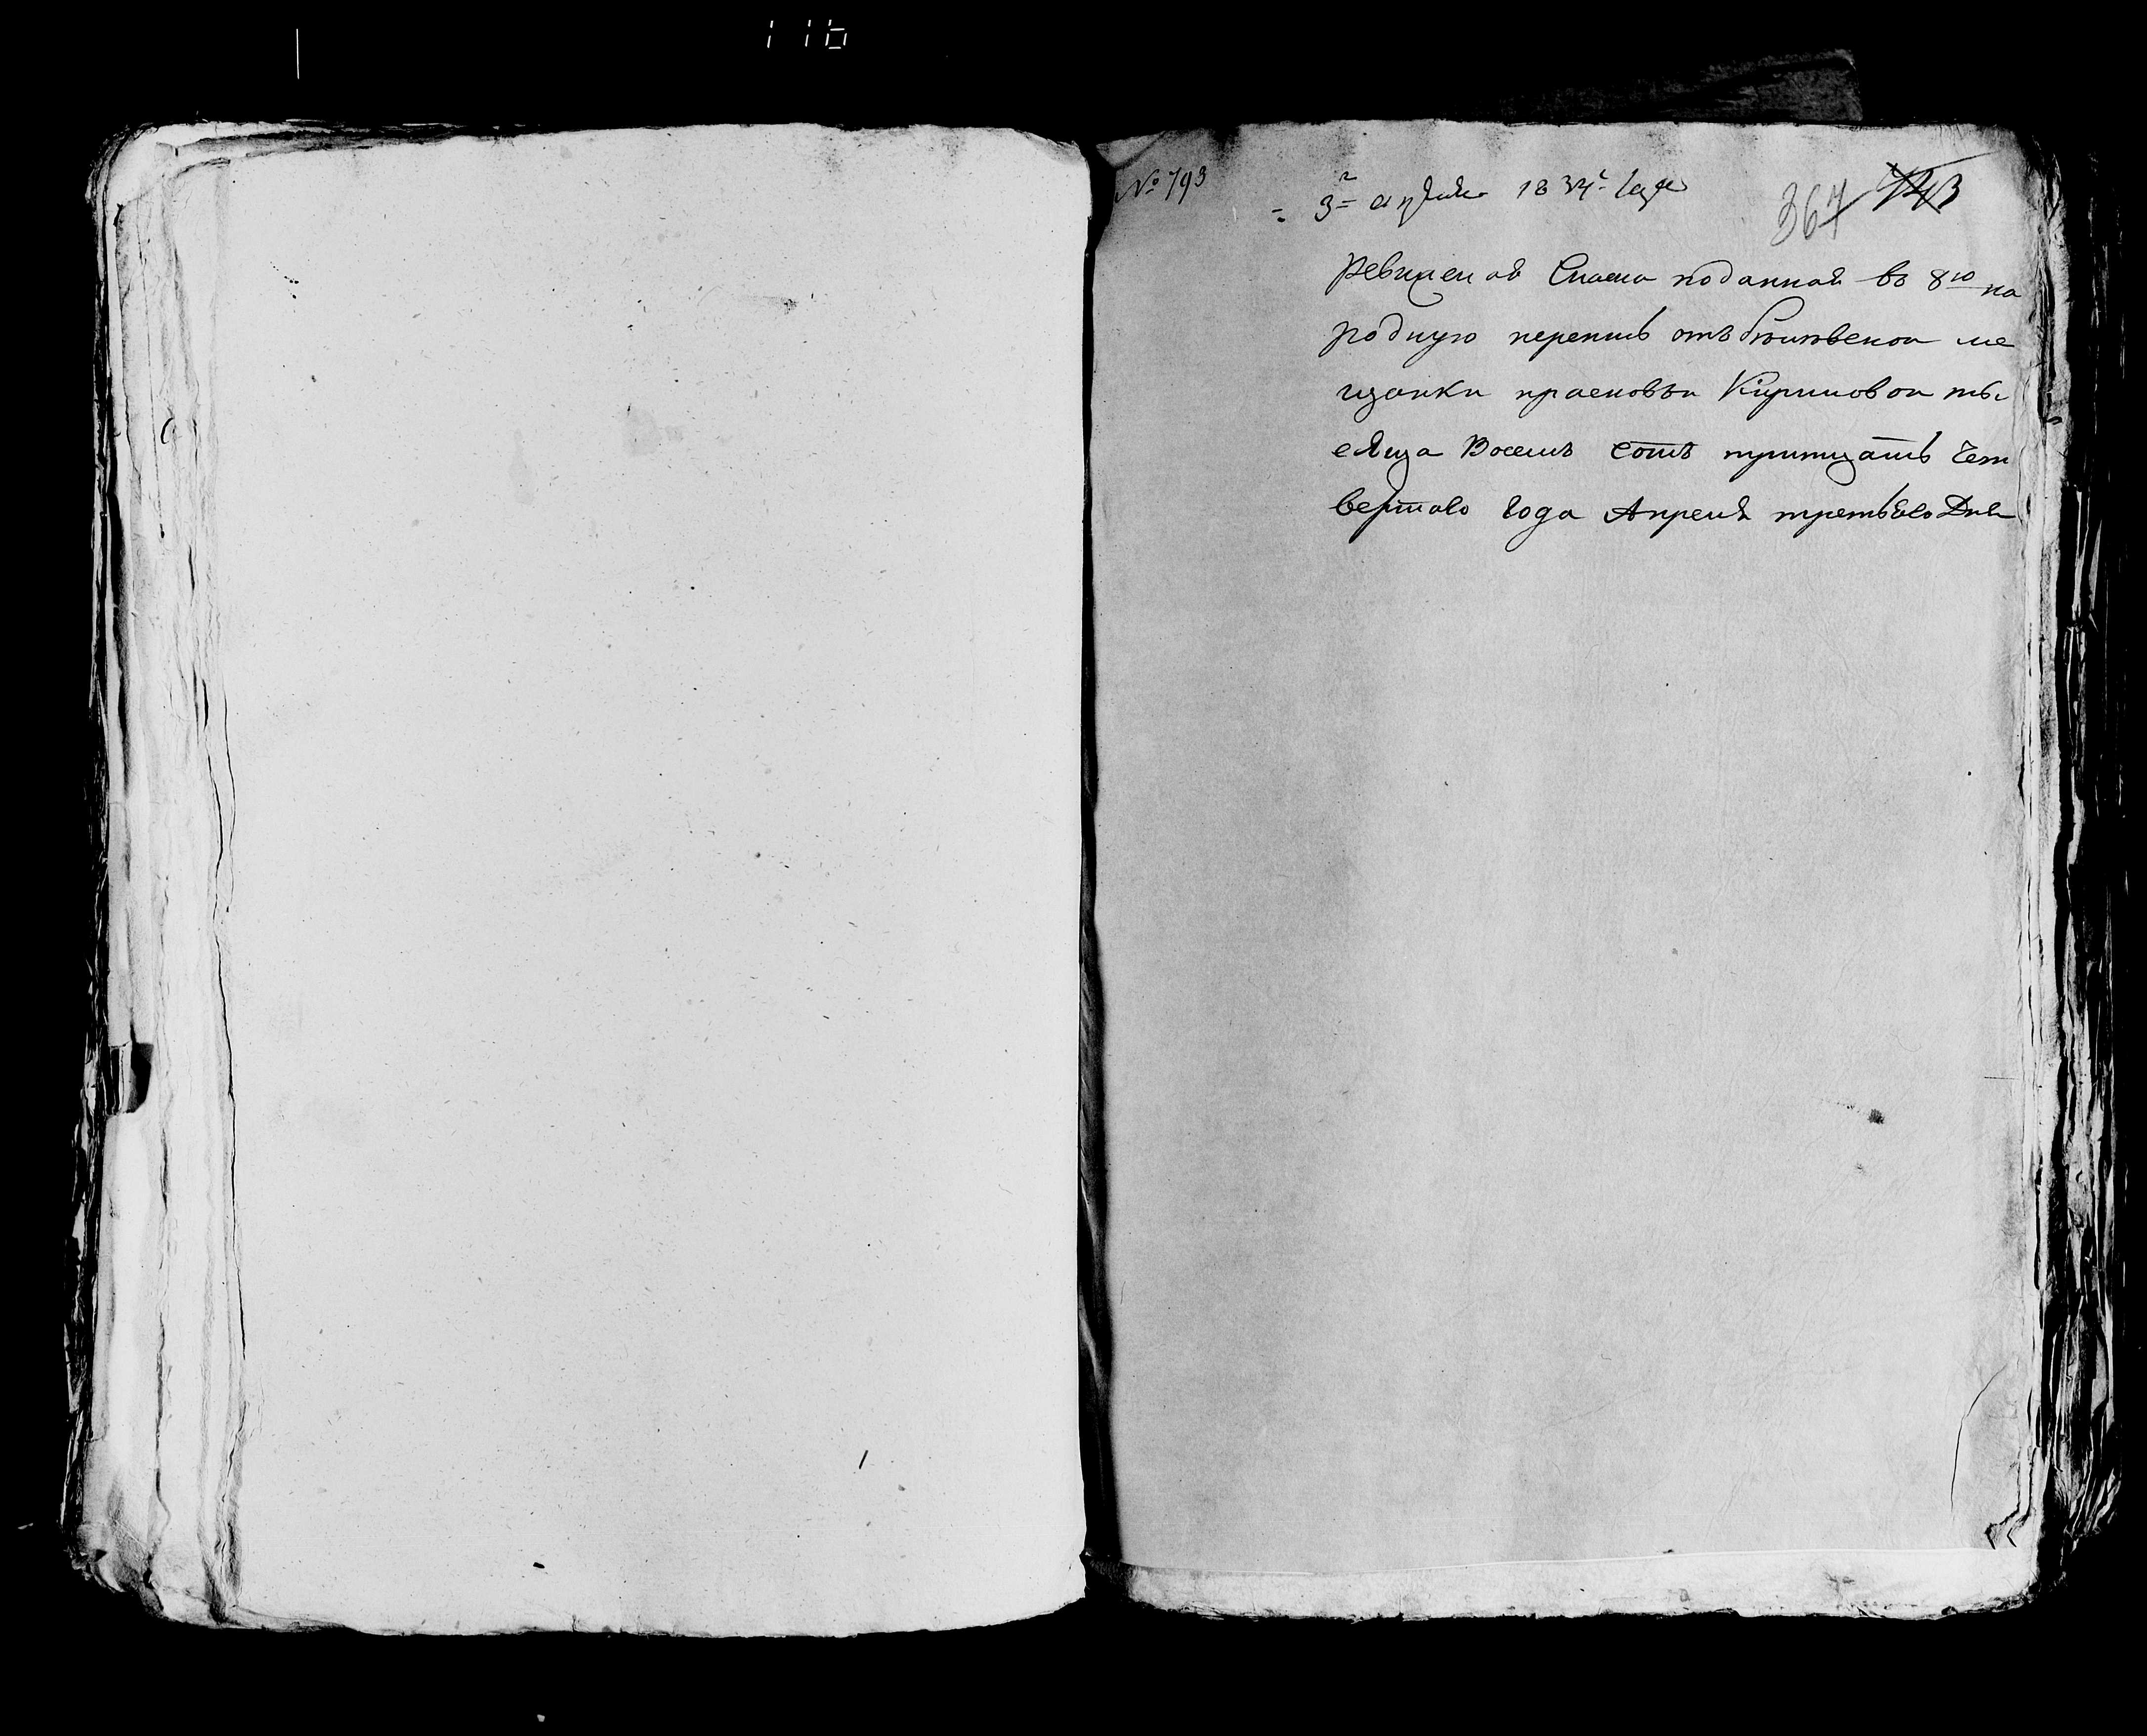 116
№ 793
3го апреля 1834г года
367 143
Ревижская Скаска поданная во 8ю на
родную перепись отъ ме
щанки прасковьи Кириловой ты
сяща Восемь сотъ тритцать Чет
вертаго года Апреля третьяго Дня